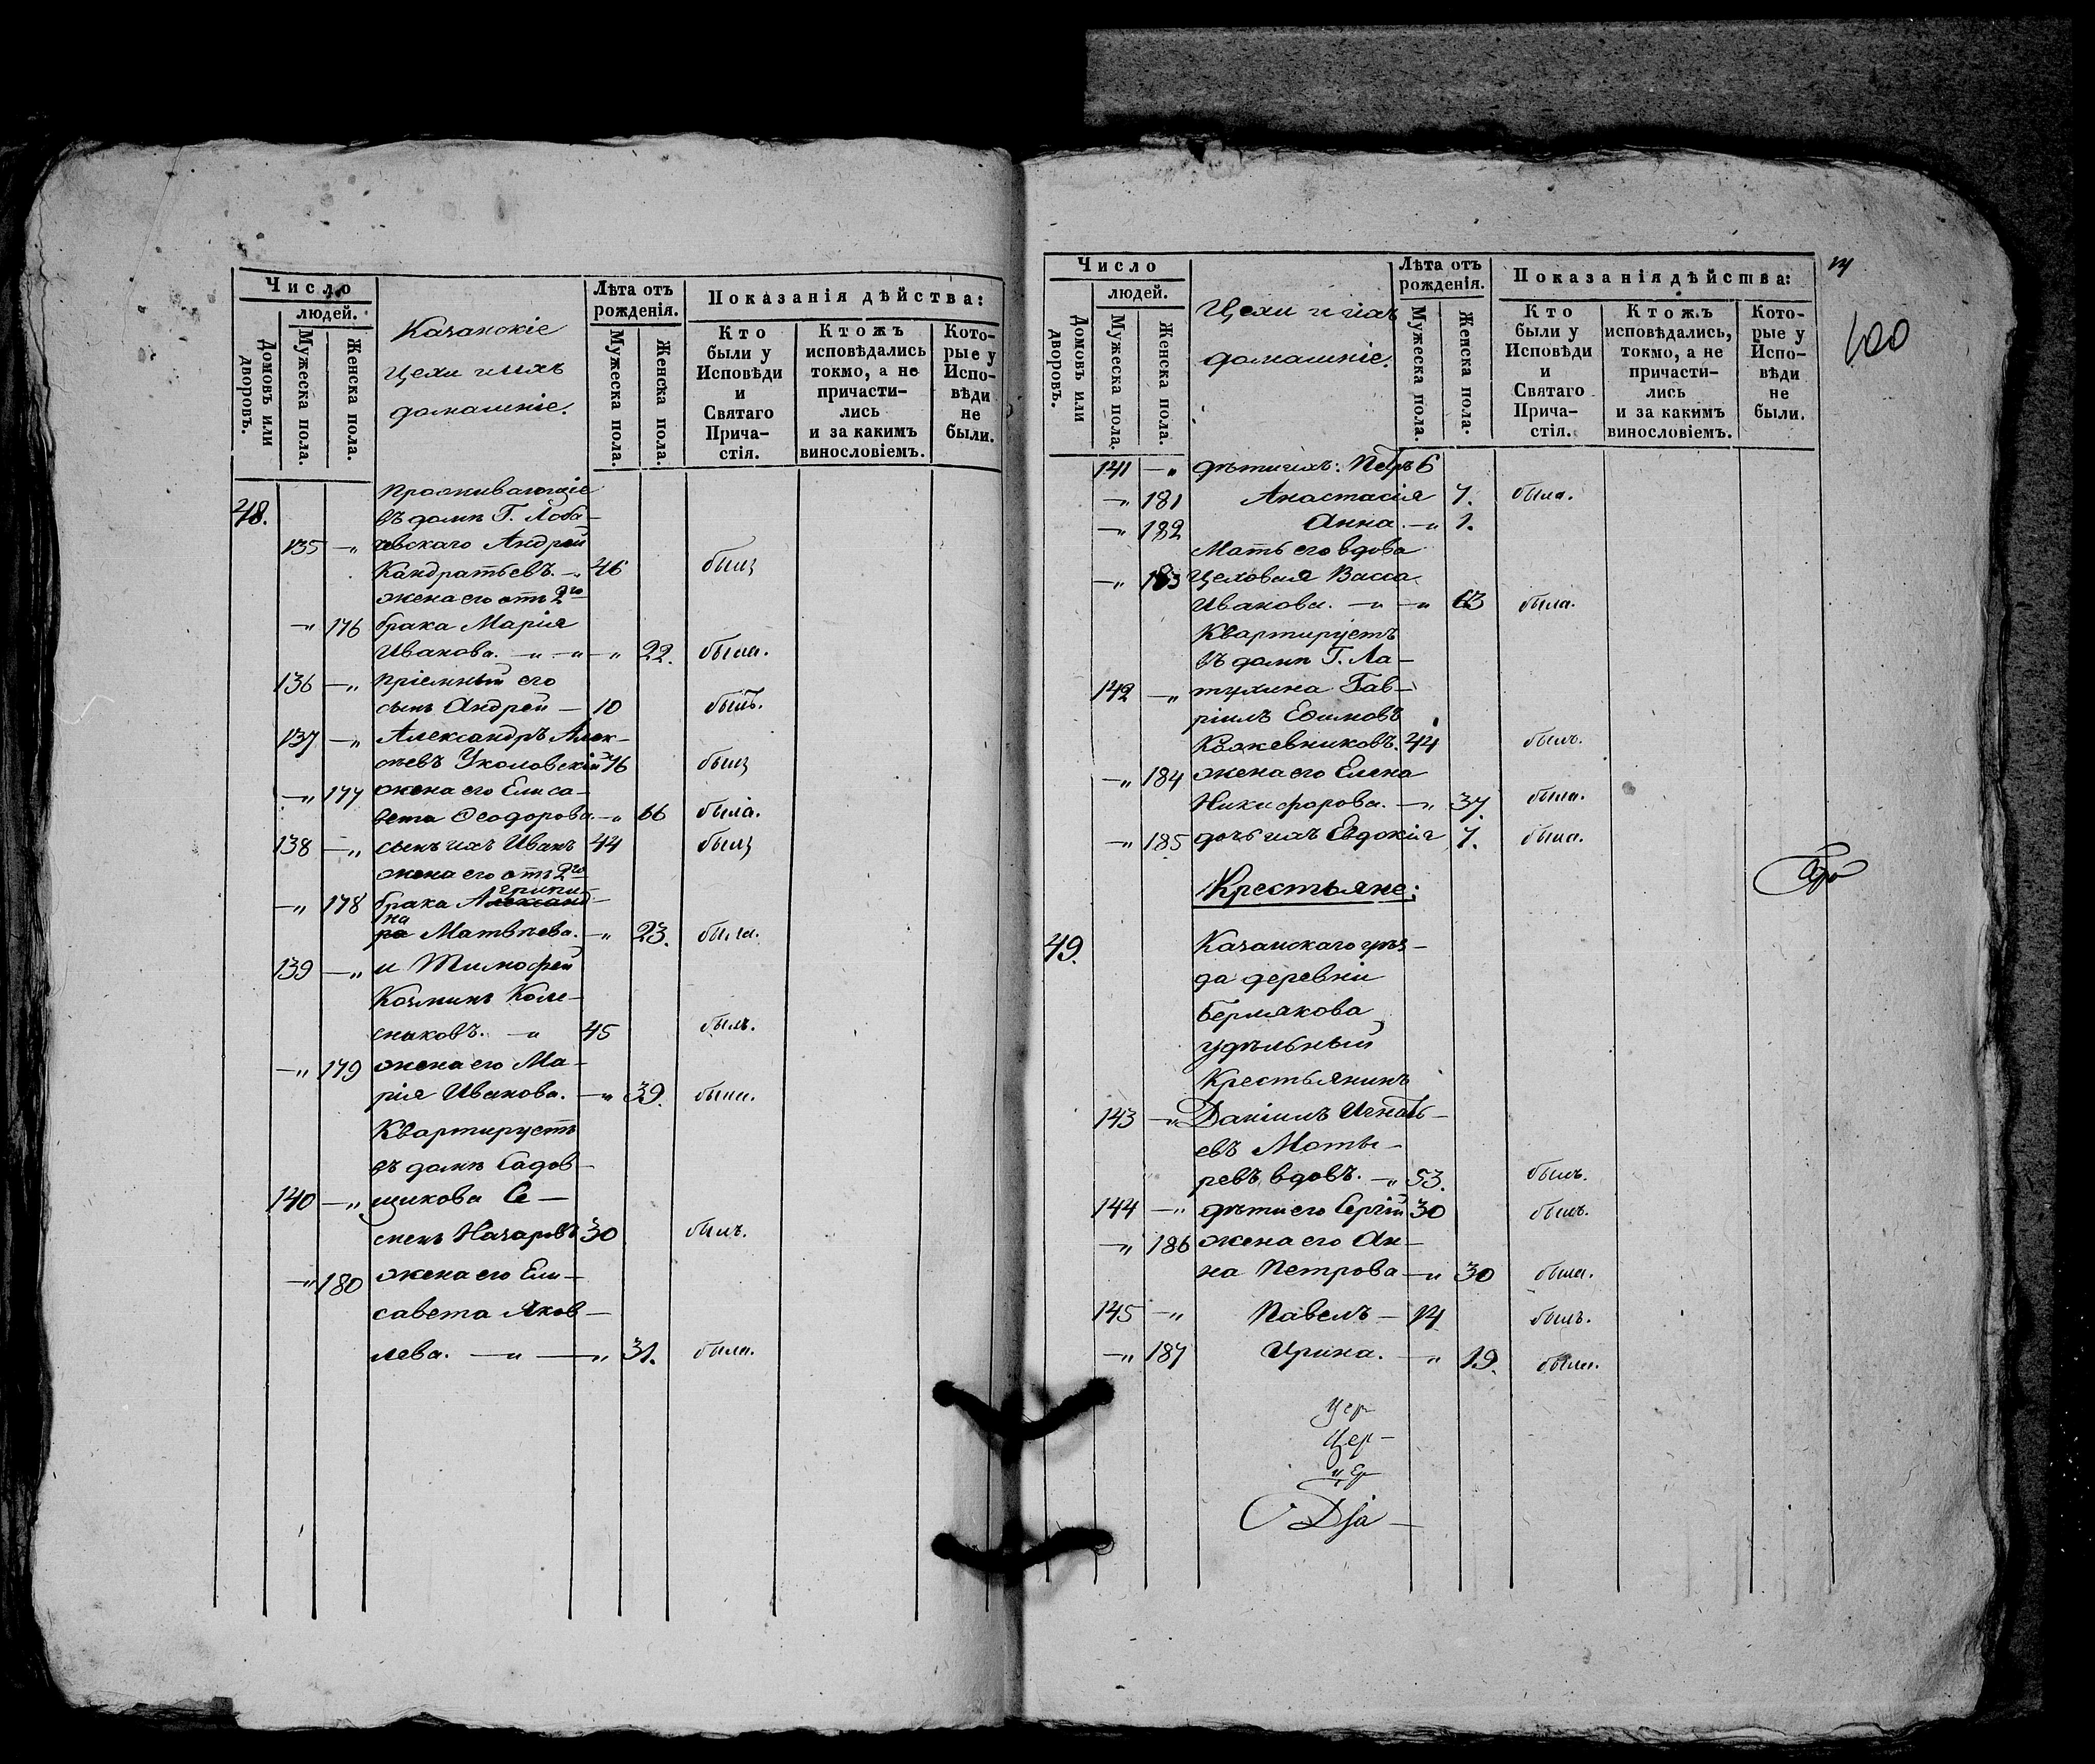 Число
людей.
Домовъ или дворовъ.
Мужеска пола.
Женска пола.
Казанскіе
Цехи и ихъ
домашніе.
Лѣта отъ рожденія.
Мужеска пола.
Женска пола.
Показанія дѣйства:
Кто были у Исповѣди и Святаго Причастія.
Ктожъ исповѣдались токмо, а не причастились и за какимъ винословіемъ.
Которые у Исповѣди не были.
48. Проживающіе
въ домѣ Г. Лоба-
135 —„ чевскаго Андрей
Кандратьевъ. —„ 46 былъ
жена его отъ 2го
—„ 176 брака Марія
Иванова. —„—„—„ 22. была.
136 —„ пріемный его
сынъ Андрей — 10 былъ.
137 —„ Александръ Алек-
сѣевъ Уколовскій 76 былъ
—„ 177 жена его Елиса-
вета Ѳеодорова —„ 66 была.
138 —„ сынъ ихъ Иванъ 44 былъ
жена его отъ 2го
—„ 178 брака Агрипи-
на Матвѣева. —„ 23. была.
139 —„ и Тимофей
Козминъ Коле-
сниковъ. —„ 45 былъ.
—„ 179 жена его Ма-
рія Иванова. —„ 39. была.
Квартируетъ
въ домѣ Садов-
140 —„ щикова Се-
менъ Назаровъ 30 былъ.
—„ 180 жена его Ели-
савета Яков-
лева. —„—„ 31. была.
14
100
Число
людей.
Домовъ или дворовъ.
Мужеска пола.
Женска пола.
Цехи и ихъ
домашніе.
Лѣта отъ рожденія.
Мужеска пола.
Женска пола.
Показанія дѣйства:
Кто были у Исповѣди и Святаго Причастія.
Ктожъ исповѣдались, токмо, а не причастились и за какимъ винословіемъ.
Которые у Исповѣди не были.
141 —„ дѣти ихъ: Петръ 6
—„ 181 Анастасія 7. была.
—„ 182 Анна. —„ 1.
Мать его вдова
—„ 183 Цеховая Васса
Иванова. —„—„ 63 была.
Квартируетъ
въ домѣ Г. Ла-
142 —„ тухина Гав-
ріилъ Ефимовъ
Кожевниковъ. 44 былъ.
—„ 184 жена его Елена
Никифорова. —„ 37. была.
—„ 185 дочь ихъ Евдокія 7. была.
Крестьяне:
49. Казанскаго уѣз-
да деревни
Бермякова
удѣльный
Крестьянинъ
143 —„ Даніилъ Игнать-
евъ Моты-
ревъ, вдовъ. —„ 53. былъ.
144 —„ дѣти его Сергій 30 былъ.
—„ 186 жена его Ан-
на Петрова —„ 30 была.
145 —„ Павелъ — 14 былъ.
—„ 187 Ирина. —„ 19. была.
Цер-